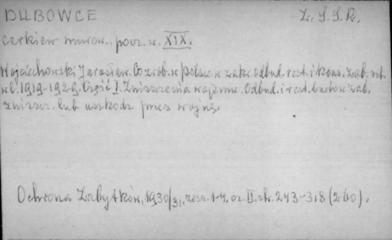 DUBOWCE Z.S.S.R.
cerkiew murow. pocz. w. XIX.
Wojciechowski Jarosław. Co zrob. w Polsce w zakr. odbud. rest. i kons. zab. szt.
w l. 1919-1929. Część I. Zniszczenia wojenne. Odbud. i rest. budow. zab.
zniszcz. lub uszkodz. przez wojnę.
Ochrona Zabytków, 1930/31, zesz. 1-4, cz. II. str. 243-318 (260).